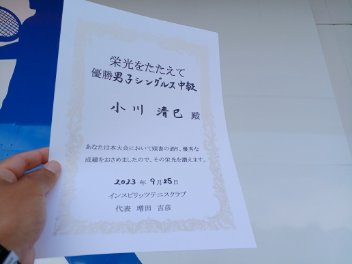 栄光をたたえて
優勝男子シングルス中級
小川 清己 殿
あなたは本大会において頭書の通り、優秀な
成績をおさめましたので、その栄光を讃えます。
2023年 9月18日
インスピリッツテニスクラブ
代表 増田 吉彦